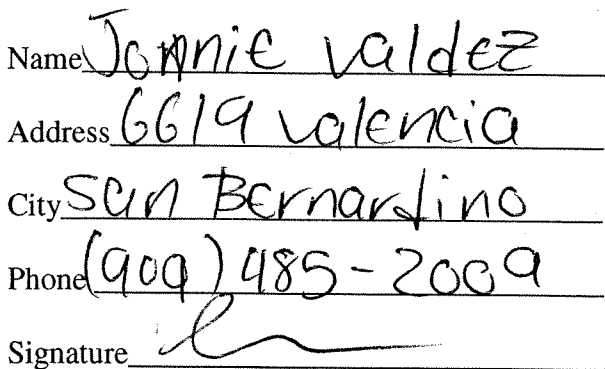 Name Jonnie Valdez
Address 6619 Valencia
City San Bernardino
Phone (909) 485-2009
Signature